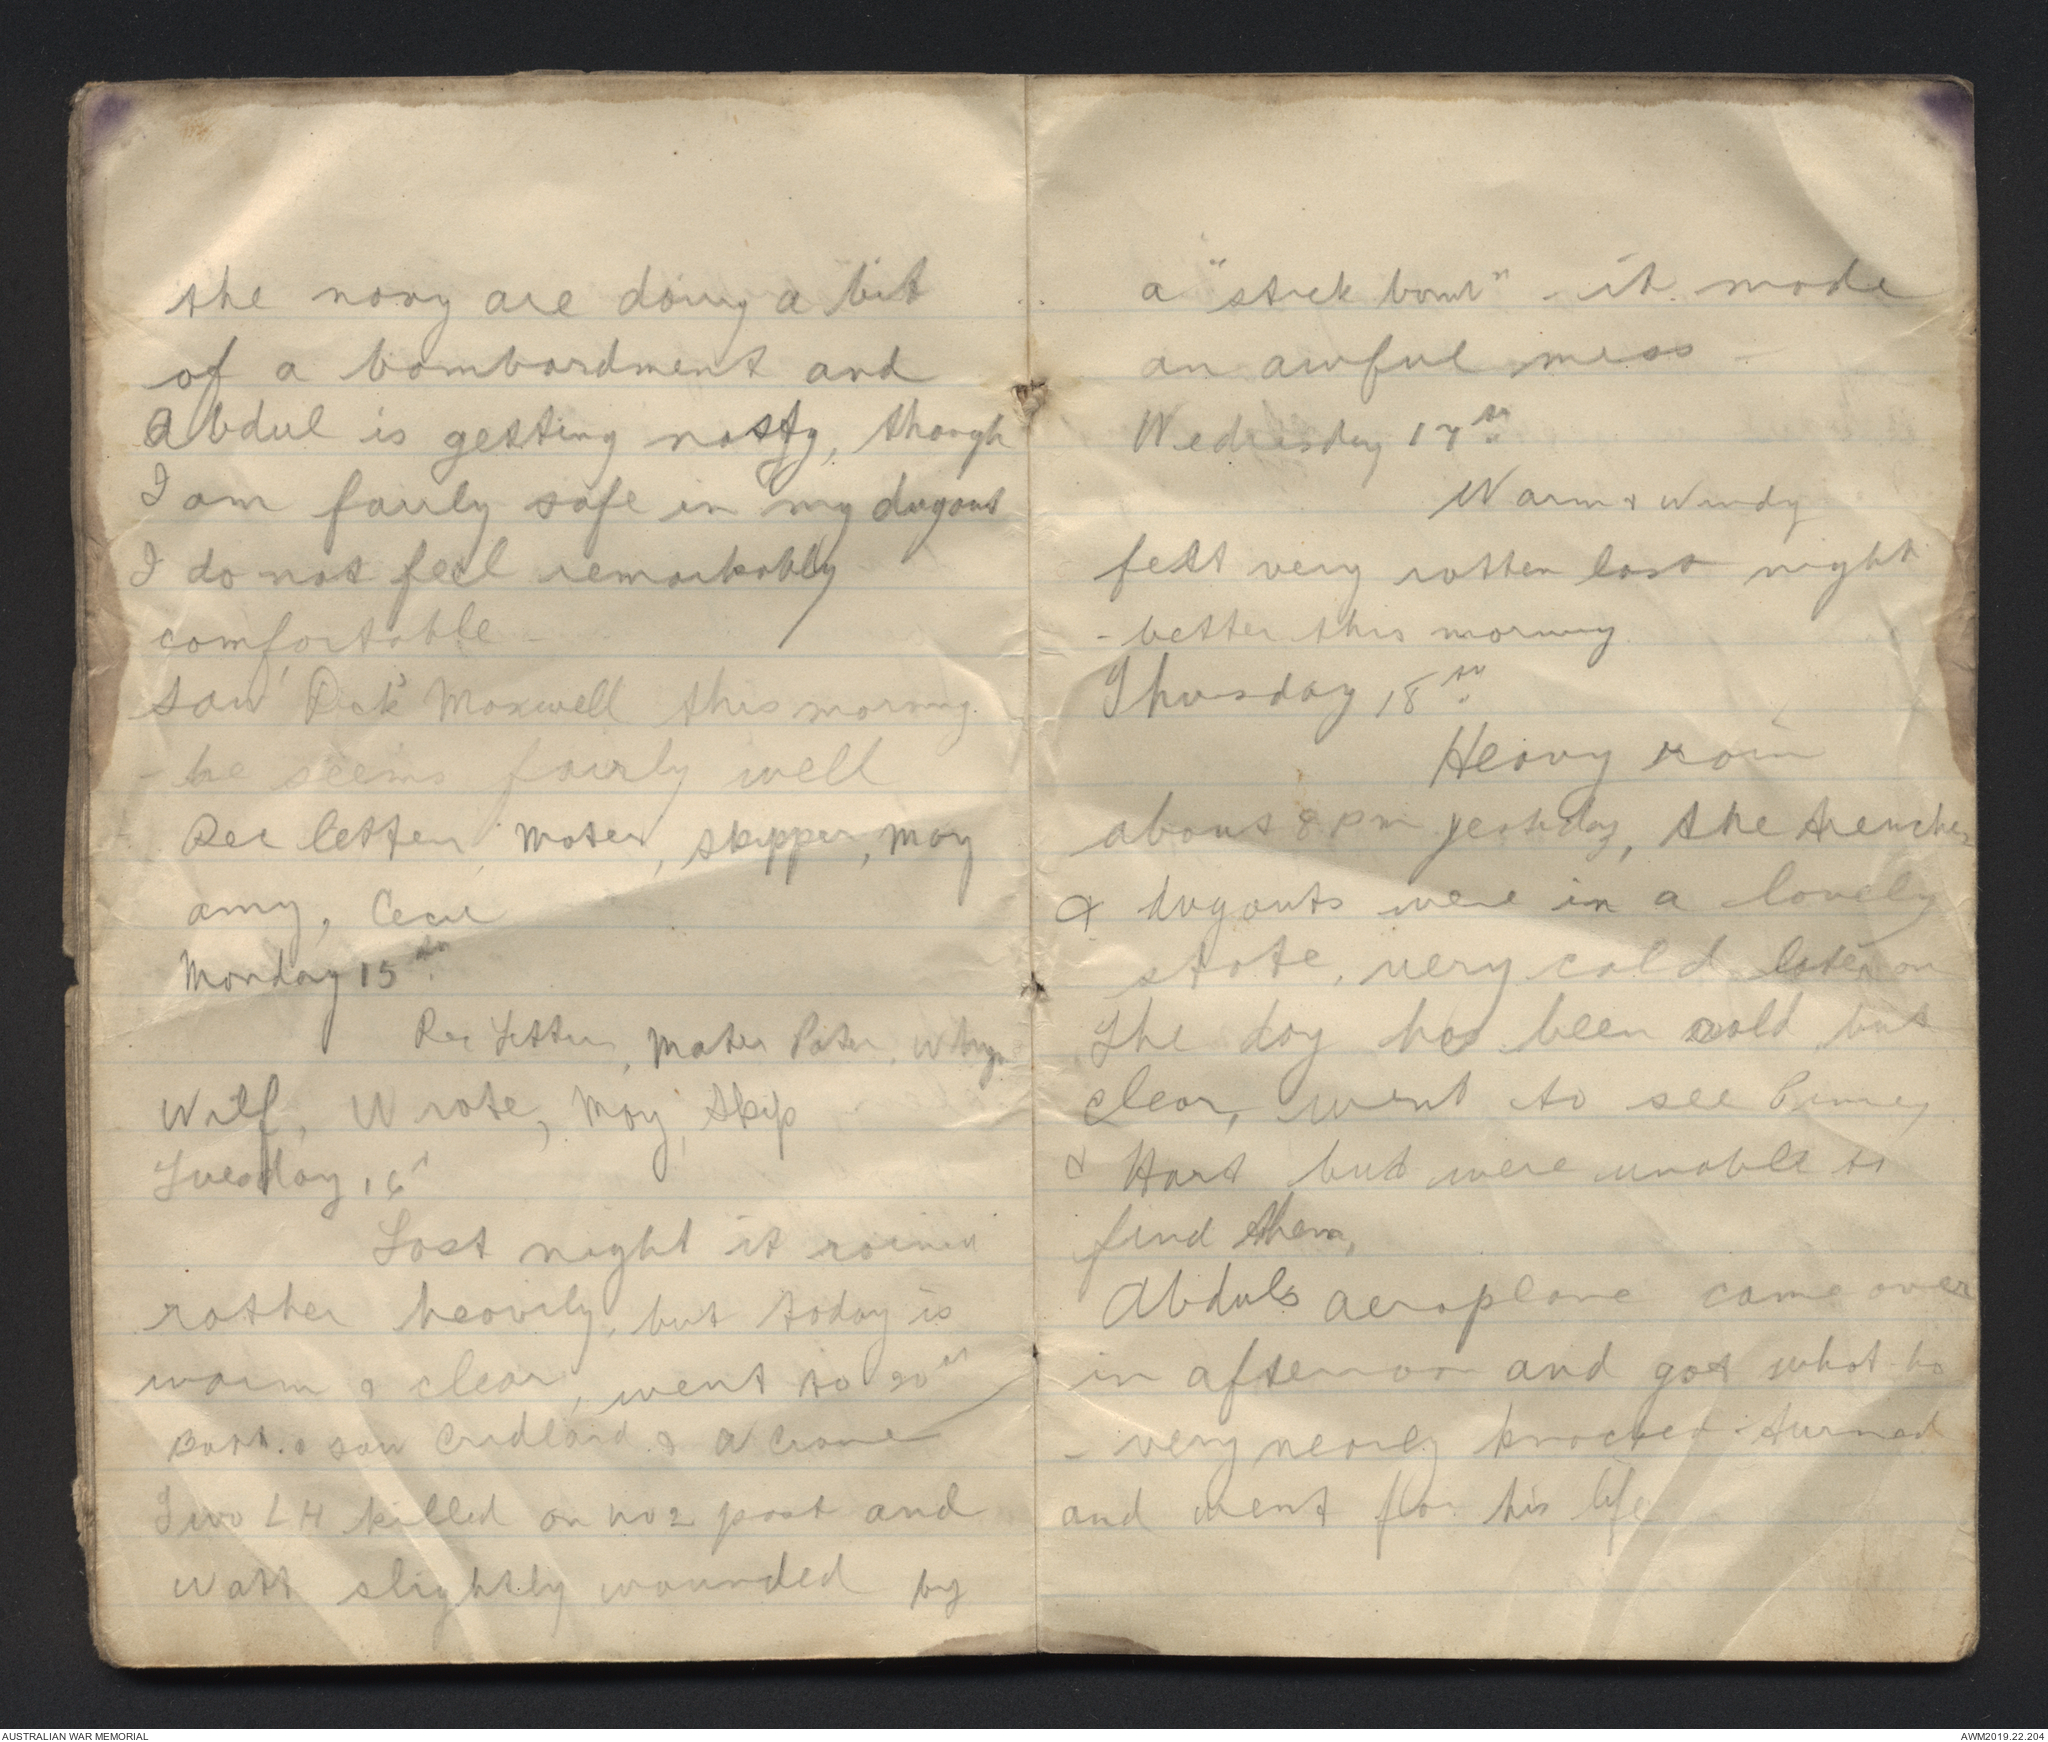 the navy are doing a bit
of a bombardment and
Abdul is getting nasty, though
I am fairly safe in my dugout
I do not feel remarkably
comfortable -
saw "Dick" Maxwell this morning
- he seems fairly well
Rec letter, Mater, Skipper, May
Amy, Cecil
Monday 15th
Rec Letters, Mater Pater,
Wilf, Wrote, May, Skip
Tuesday 16
Last night it rained
rather heavily, but today is
warm & clear, went to 20th
Batt. & saw Cridland & A Crane
Two LH killed on no 2 post and
Watt slightly wounded by
a "stick bomb" - it made
an awful mess -
Wednesday 17th
Warm & Windy
felt very rotten last night
- better this morning
Thursday 18th
Heavy rain
about 8 pm yesterday, the trenches
& dugouts were in a lovely
state, very cold later on
The day has been cold but
clear, went to see
& Hart but were unable to
find them,
Abduls aeroplane came over
in afternoon and got what ho
- very nearly knocked turned
and went for his life
AUSTRALIAN WAR MEMORIAL
AWM2019.22.204